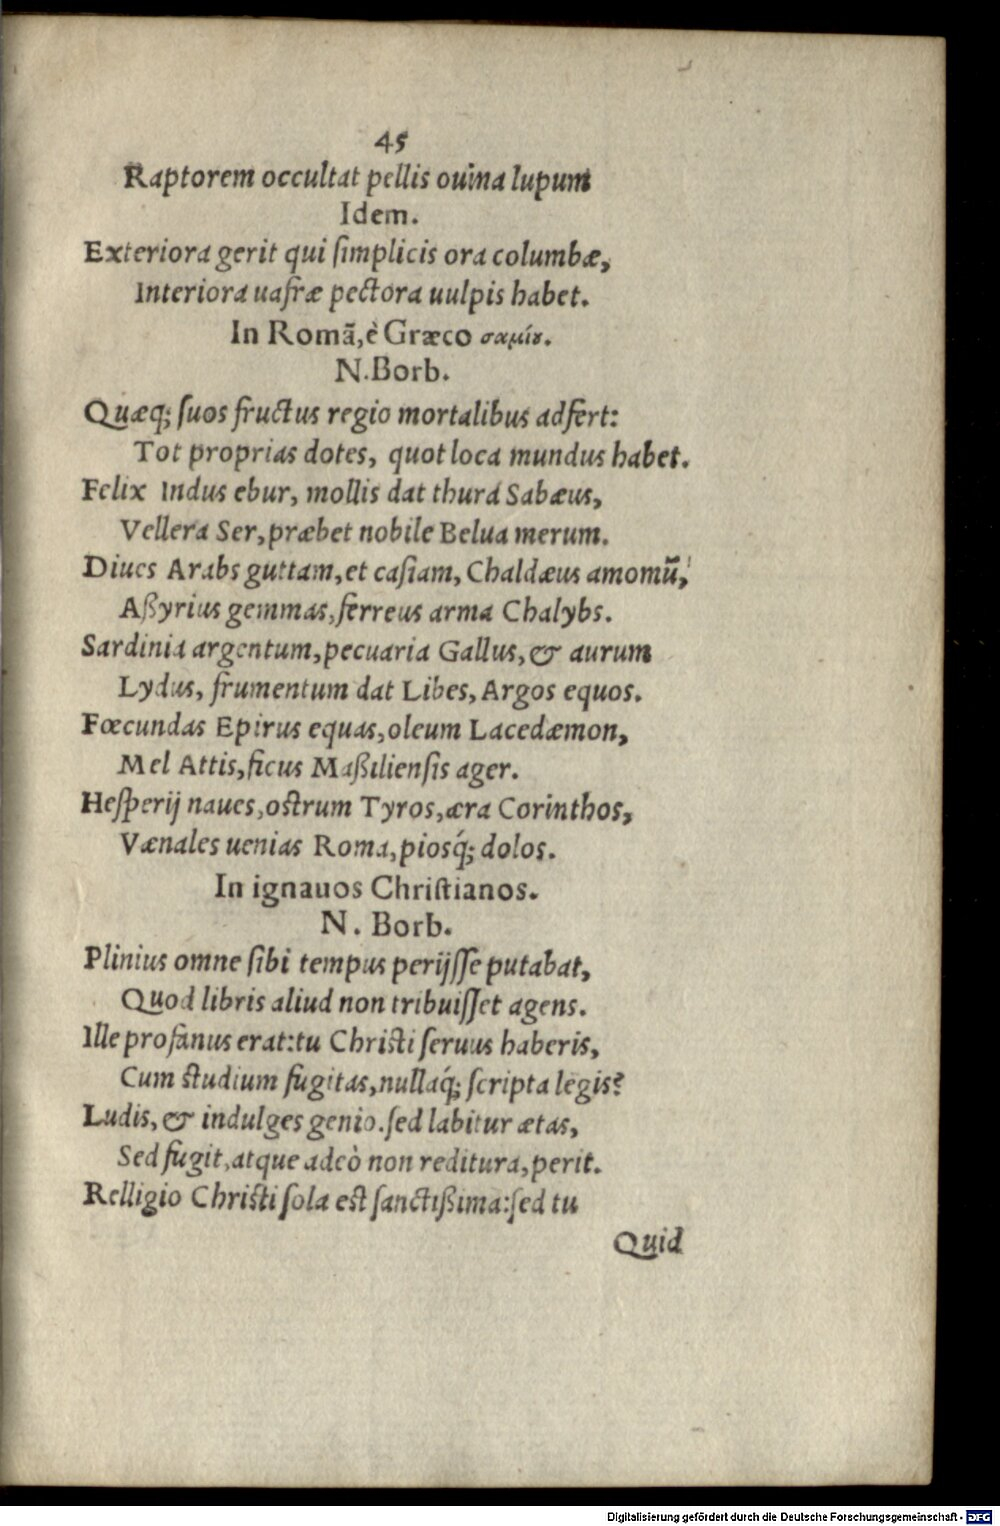 45
Raptorem occultat pellis ouina lupum
Idem.
Exteriora gerit qui ſimplicis ora columbæ,
Interiora uafræ pectora uulpis habet.
In Romã, è Græco σαμίȣ.
N. Borb.
Quæq; ſuos fructus regio mortalibus adfert:
Tot proprias dotes, quot loca mundus habet.
Felix Indus ebur, mollis dat thura Sabæus,
Vellera Ser, præbet nobile Belua merum.
Diues Arabs guttam, et caſiam, Chaldæus amomũ,
Aßyrius gemmas, ferreus arma Chalybs.
Sardinia argentum, pecuaria Gallus, & aurum
Lydus, frumentum dat Libes, Argos equos.
Fœcundas Epirus equas, oleum Lacedæmon,
Mel Attis, ficus Maßilienſis ager.
Heſperij naues, oſtrum Tyros, æra Corinthos,
Vænales uenias Roma, piosq́; dolos.
In ignauos Chriſtianos.
N. Borb.
Plinius omne ſibi tempus perijſſe putabat,
Quod libris aliud non tribuiſſet agens.
Ille profanus erat: tu Chriſti ſeruus haberis,
Cum ſtudium fugitas, nullaq́; ſcripta legis?
Ludis, & indulges genio. ſed labitur ætas,
Sed fugit, atque adeò non reditura, perit.
Relligio Chriſti ſola eſt ſanctißima: ſed tu
Quid
Digitalisierung gefördert durch die Deutsche Forschungsgemeinschaft - DFG